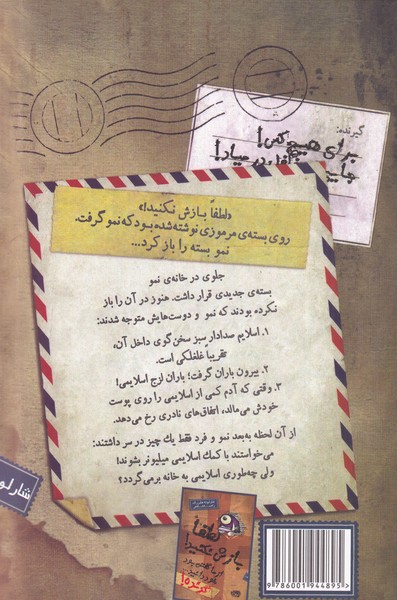 گیرنده:
برای هیچ کس!
«لطفاً بازش نکنید!»
روی بسته‌ی مرموزی نوشته شده بود که نمو گرفت.
نمو بسته را باز کرد...
جلوی در خانه‌ی نمو
بسته‌ی جدیدی قرار داشت. هنوز در آن را باز
نکرده بودند که نمو و دوست‌هایش متوجه شدند:
۱. اسلایم صدادار سبز سخن‌گوی داخل آن،
تقریباً غلغلکی است.
۲. بیرون باران گرفت؛ باران لزج اسلایمی!
۳. وقتی که آدم کمی از اسلایمی را روی پوست
خودش می‌مالد، اتفاق‌های نادری رخ می‌دهد.
از آن لحظه به‌بعد نمو و فرد فقط یك چیز در سر داشتند:
می‌خواستند با کمك اسلایمی میلیونر بشوند!
ولی چه‌طوری اسلایمی به خانه برمی‌گردد؟
شارلو
لطفاً
بازش نکنید!
9 786001 944895